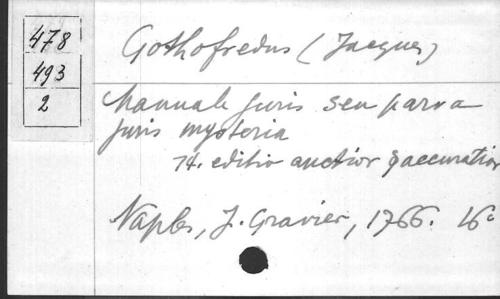 478
493
2
Gothofredus (Jacques)
Manuale juris seu parva
juris mysteria
74. editio auctior & accuratior
Naples, J. Gravier, 1766. 16°